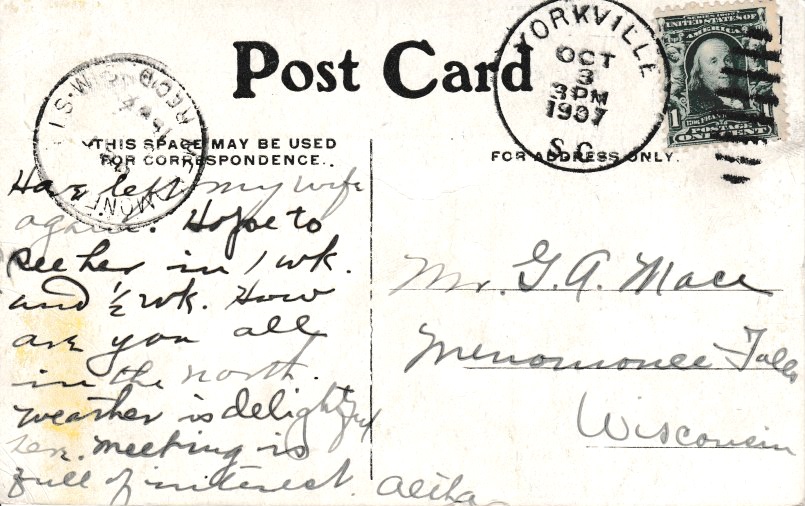 Post Card
YORKVILLE
OCT
3
3PM
1907
S.C.
SERIES 1902
UNITED STATES OF
AMERICA
1
POSTAGE
ONE CENT
REC'D
THIS SPACE MAY BE USED
FOR CORRESPONDENCE.
FOR ADDRESS ONLY.
Have left my wife
again. Hope to
see her in 1 wk.
and ½ wk. How
are you all
in the north.
weather is delightful
here. meeting is
full of interest.
Mr. G. A. Mace
Menomonee Falls
Wisconsin